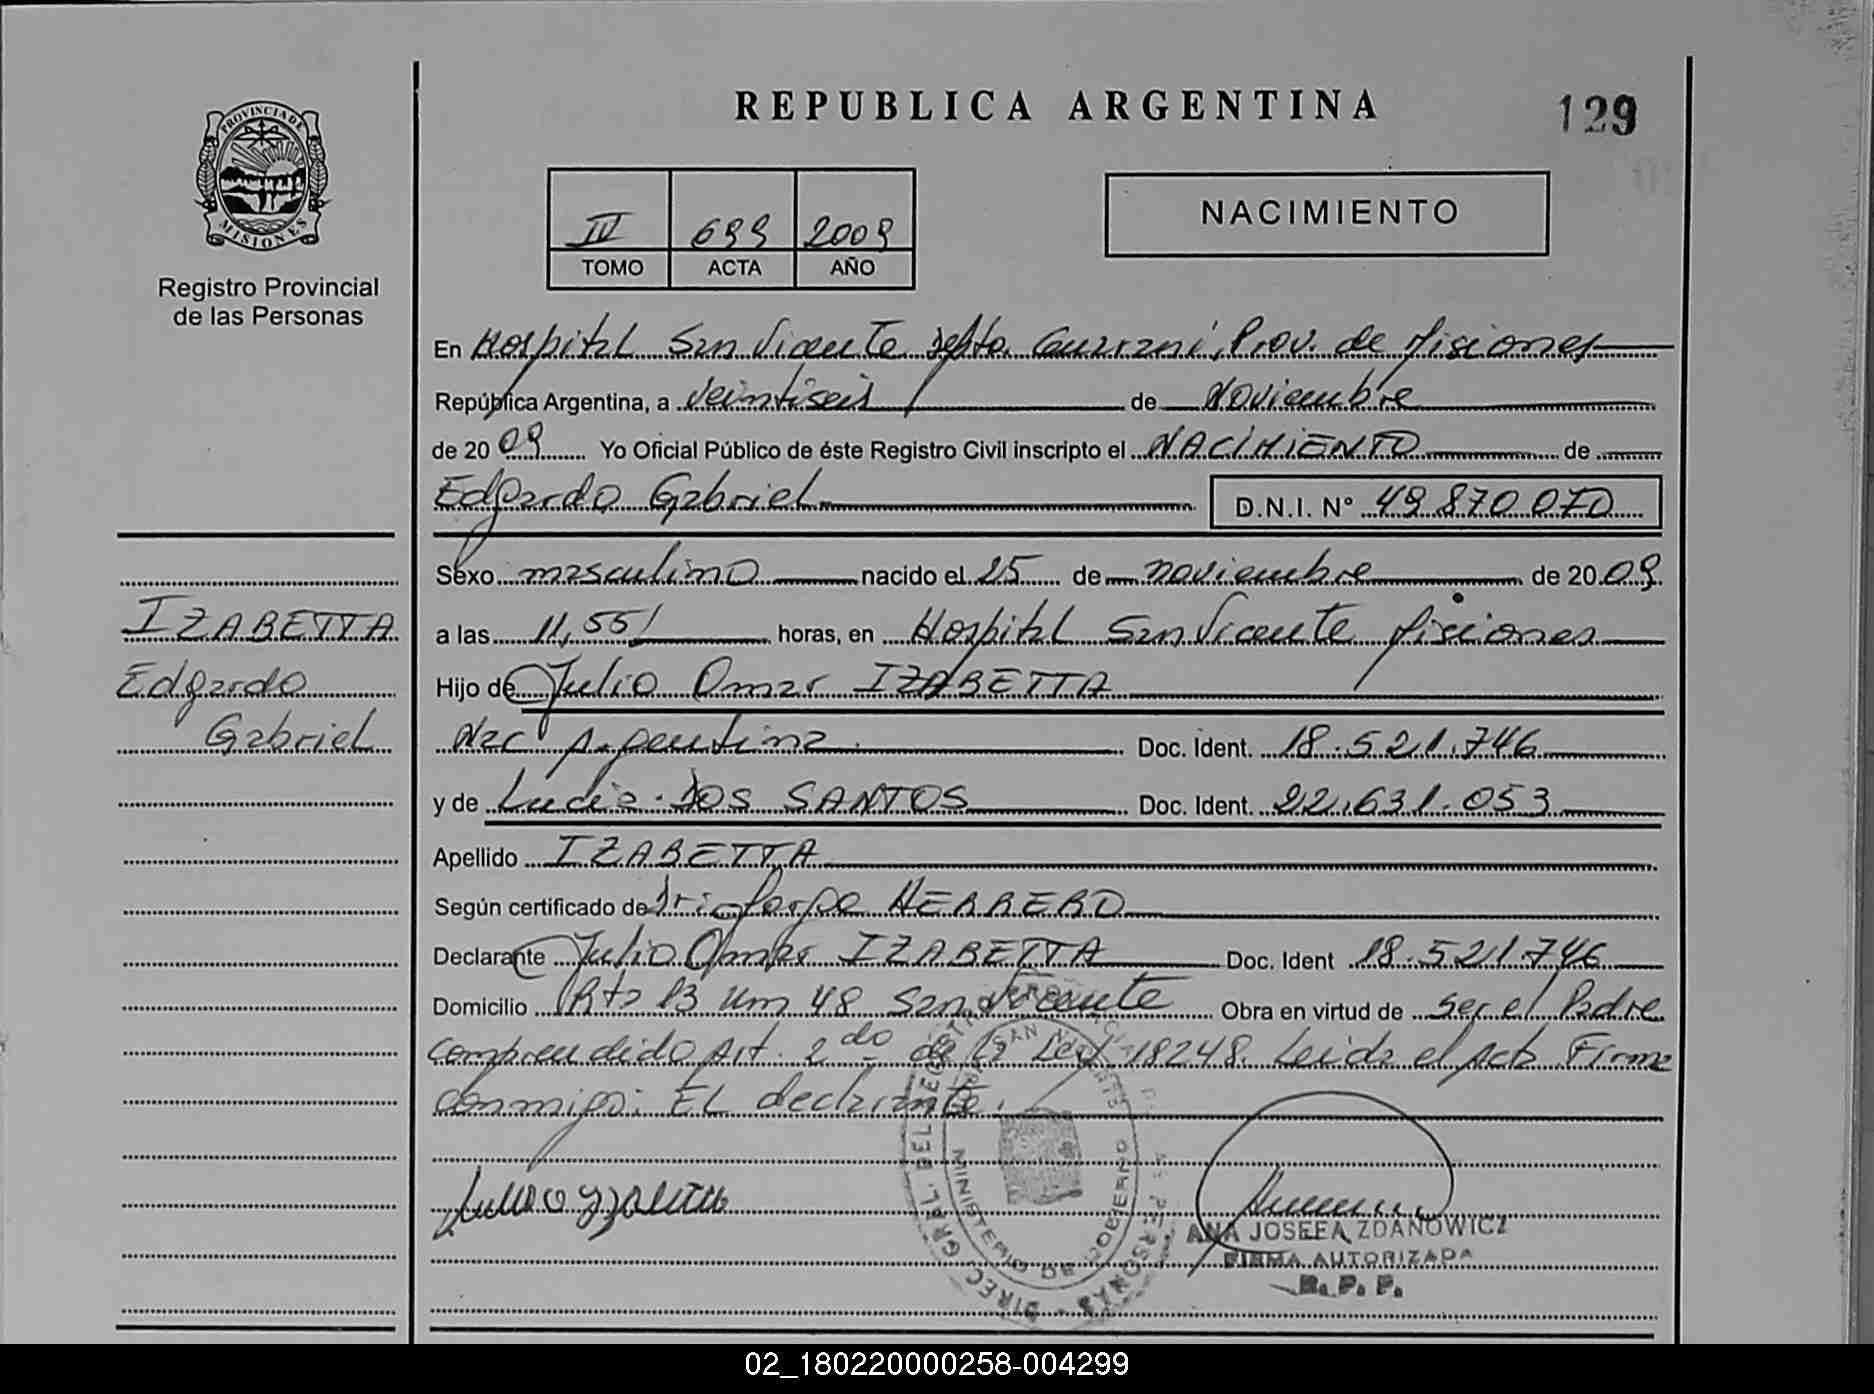 REPUBLICA ARGENTINA
129
PROVINCIA DE
MISIONES
Registro Provincial
de las Personas
IV 699 2009
TOMO ACTA AÑO
NACIMIENTO
En Hospital San Vicente Dpto. Guarani, Prov. de Misiones
República Argentina, a veintiseis de Noviembre
de 20 09 Yo Oficial Público de éste Registro Civil inscripto el NACIMIENTO de
Edgardo Gabriel D.N.I. Nº 49 870 070
Sexo masculino nacido el 25 de noviembre de 20 09
a las 11,55 horas, en Hospital San Vicente Misiones
Hijo de Julio Omar IZABETTA
Nac Argentina Doc. Ident. 18.521.746
y de Lucia DOS SANTOS Doc. Ident. 22.631.053
Apellido IZABETTA
Según certificado de HERRERO
Declarante Julio Omar IZABETTA Doc. Ident 18.521.746
Domicilio Rta 13 Km 48 San Vicente Obra en virtud de ser el Padre
comprendido Art. 2do de la Ley 18248. Leida el Acta Firma
conmigo: EL declarante.
IZABETTA
Edgardo
Gabriel
MINISTERIO DE GOBIERNO
ANA JOSEFA ZDANOWICZ
FIRMA AUTORIZADA
R. P. P.
02_180220000258-004299